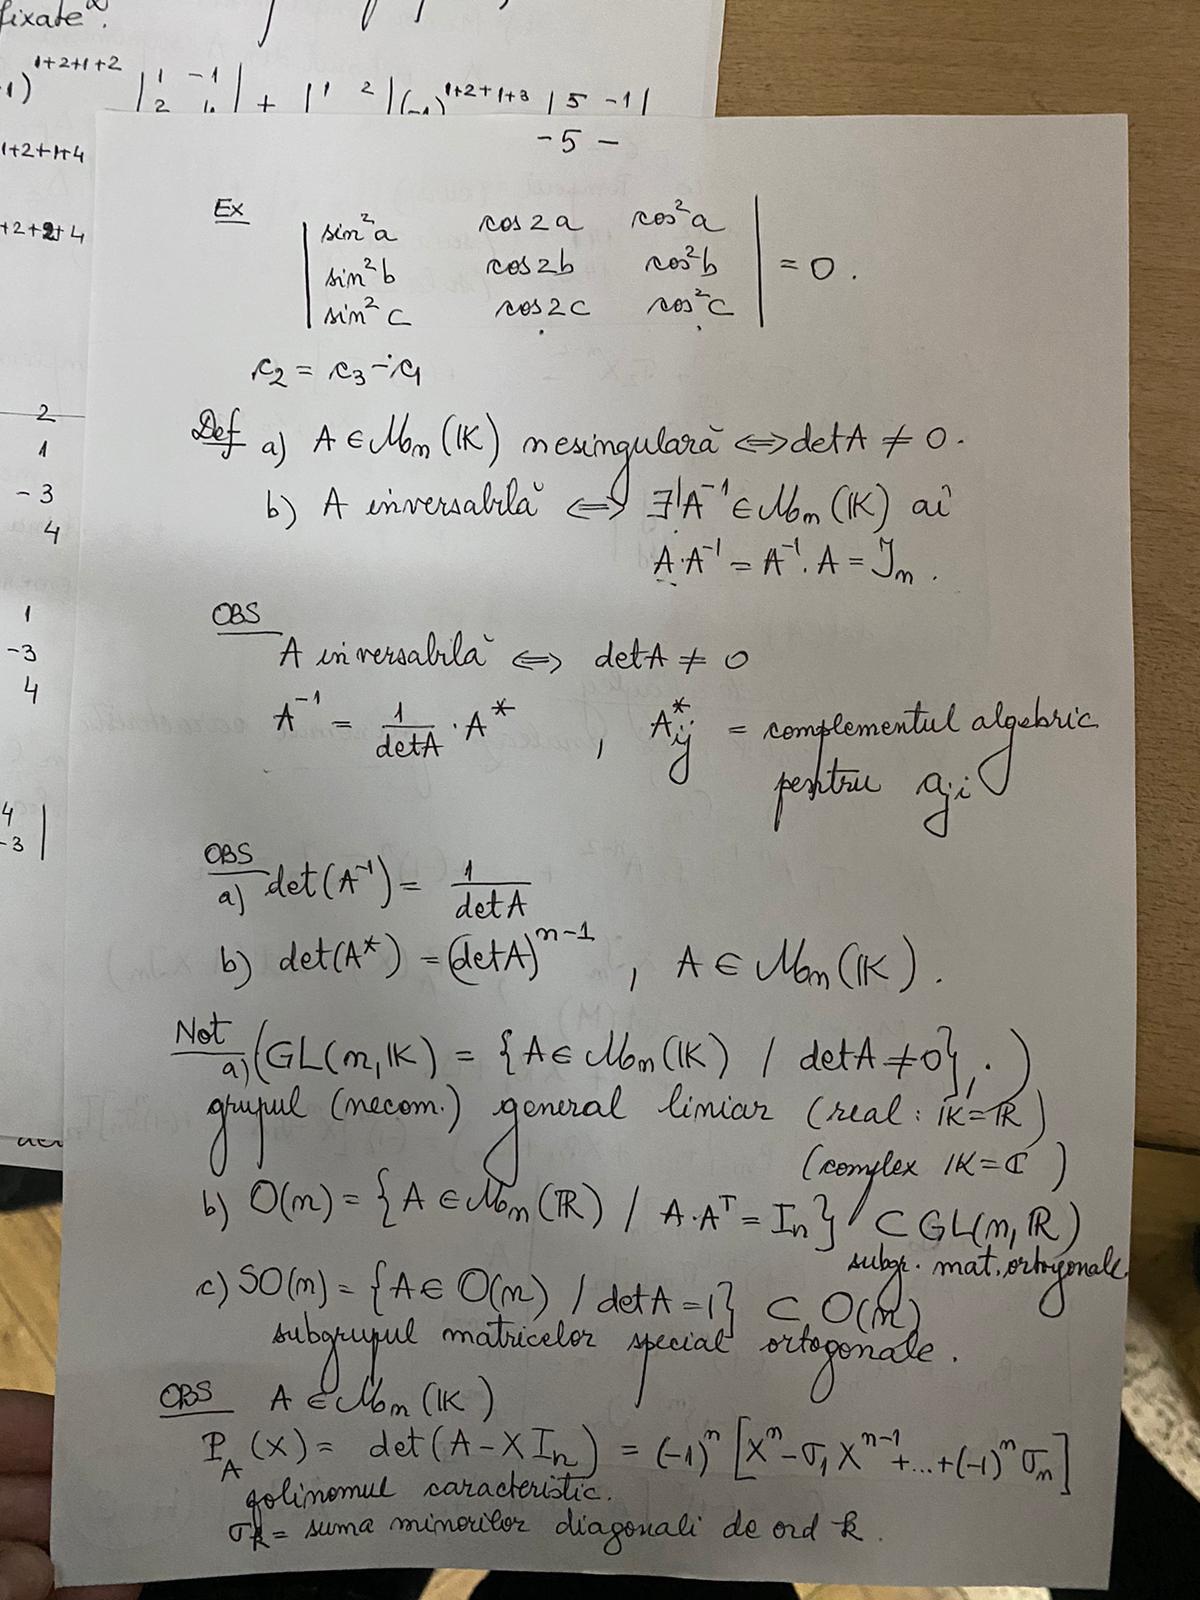 fixate".
1)^{1+2+1+2} |1 -1| + |1 2| (-1)^{1+2+1+3} |5 -1|
2 4
1+2+1+4
+2+2+4
2
1
-3
4
1
-3
4
4
-3
- 5 -
Ex
| sin²a cos2a cos²a |
| sin²b cos2b cos²b | = 0.
| sin²c cos2c cos²c |
c₂ = c₃ - c₁
Def a) A ∈ Mₙ(K) nesingulară ⟺ detA ≠ 0.
b) A inversabilă ⟺ ∃! A⁻¹ ∈ Mₙ(K) aî
A·A⁻¹ = A⁻¹·A = Iₙ.
OBS
A inversabilă ⟺ detA ≠ 0
A⁻¹ = 1/detA · A* , A*ᵢⱼ = complementul algebric
pentru aⱼᵢ
OBS
a) det(A⁻¹) = 1/detA
b) det(A*) = (detA)ⁿ⁻¹ , A ∈ Mₙ(K).
Not
a) (GL(n,K) = {A ∈ Mₙ(K) / detA ≠ 0}, ·)
grupul (necom.) general liniar (real: K=R)
(complex K=C)
b) O(n) = {A ∈ Mₙ(R) / A·Aᵀ = Iₙ} ⊂ GL(n,R)
subgr. mat. ortogonale.
c) SO(n) = {A ∈ O(n) / detA = 1} ⊂ O(n)
subgrupul matricelor special ortogonale.
OBS A ∈ Mₙ(K)
P_A(X) = det(A - X Iₙ) = (-1)ⁿ [Xⁿ - σ₁Xⁿ⁻¹ + ... + (-1)ⁿ σₙ]
polinomul caracteristic.
σₖ = suma minorilor diagonali de ord k.